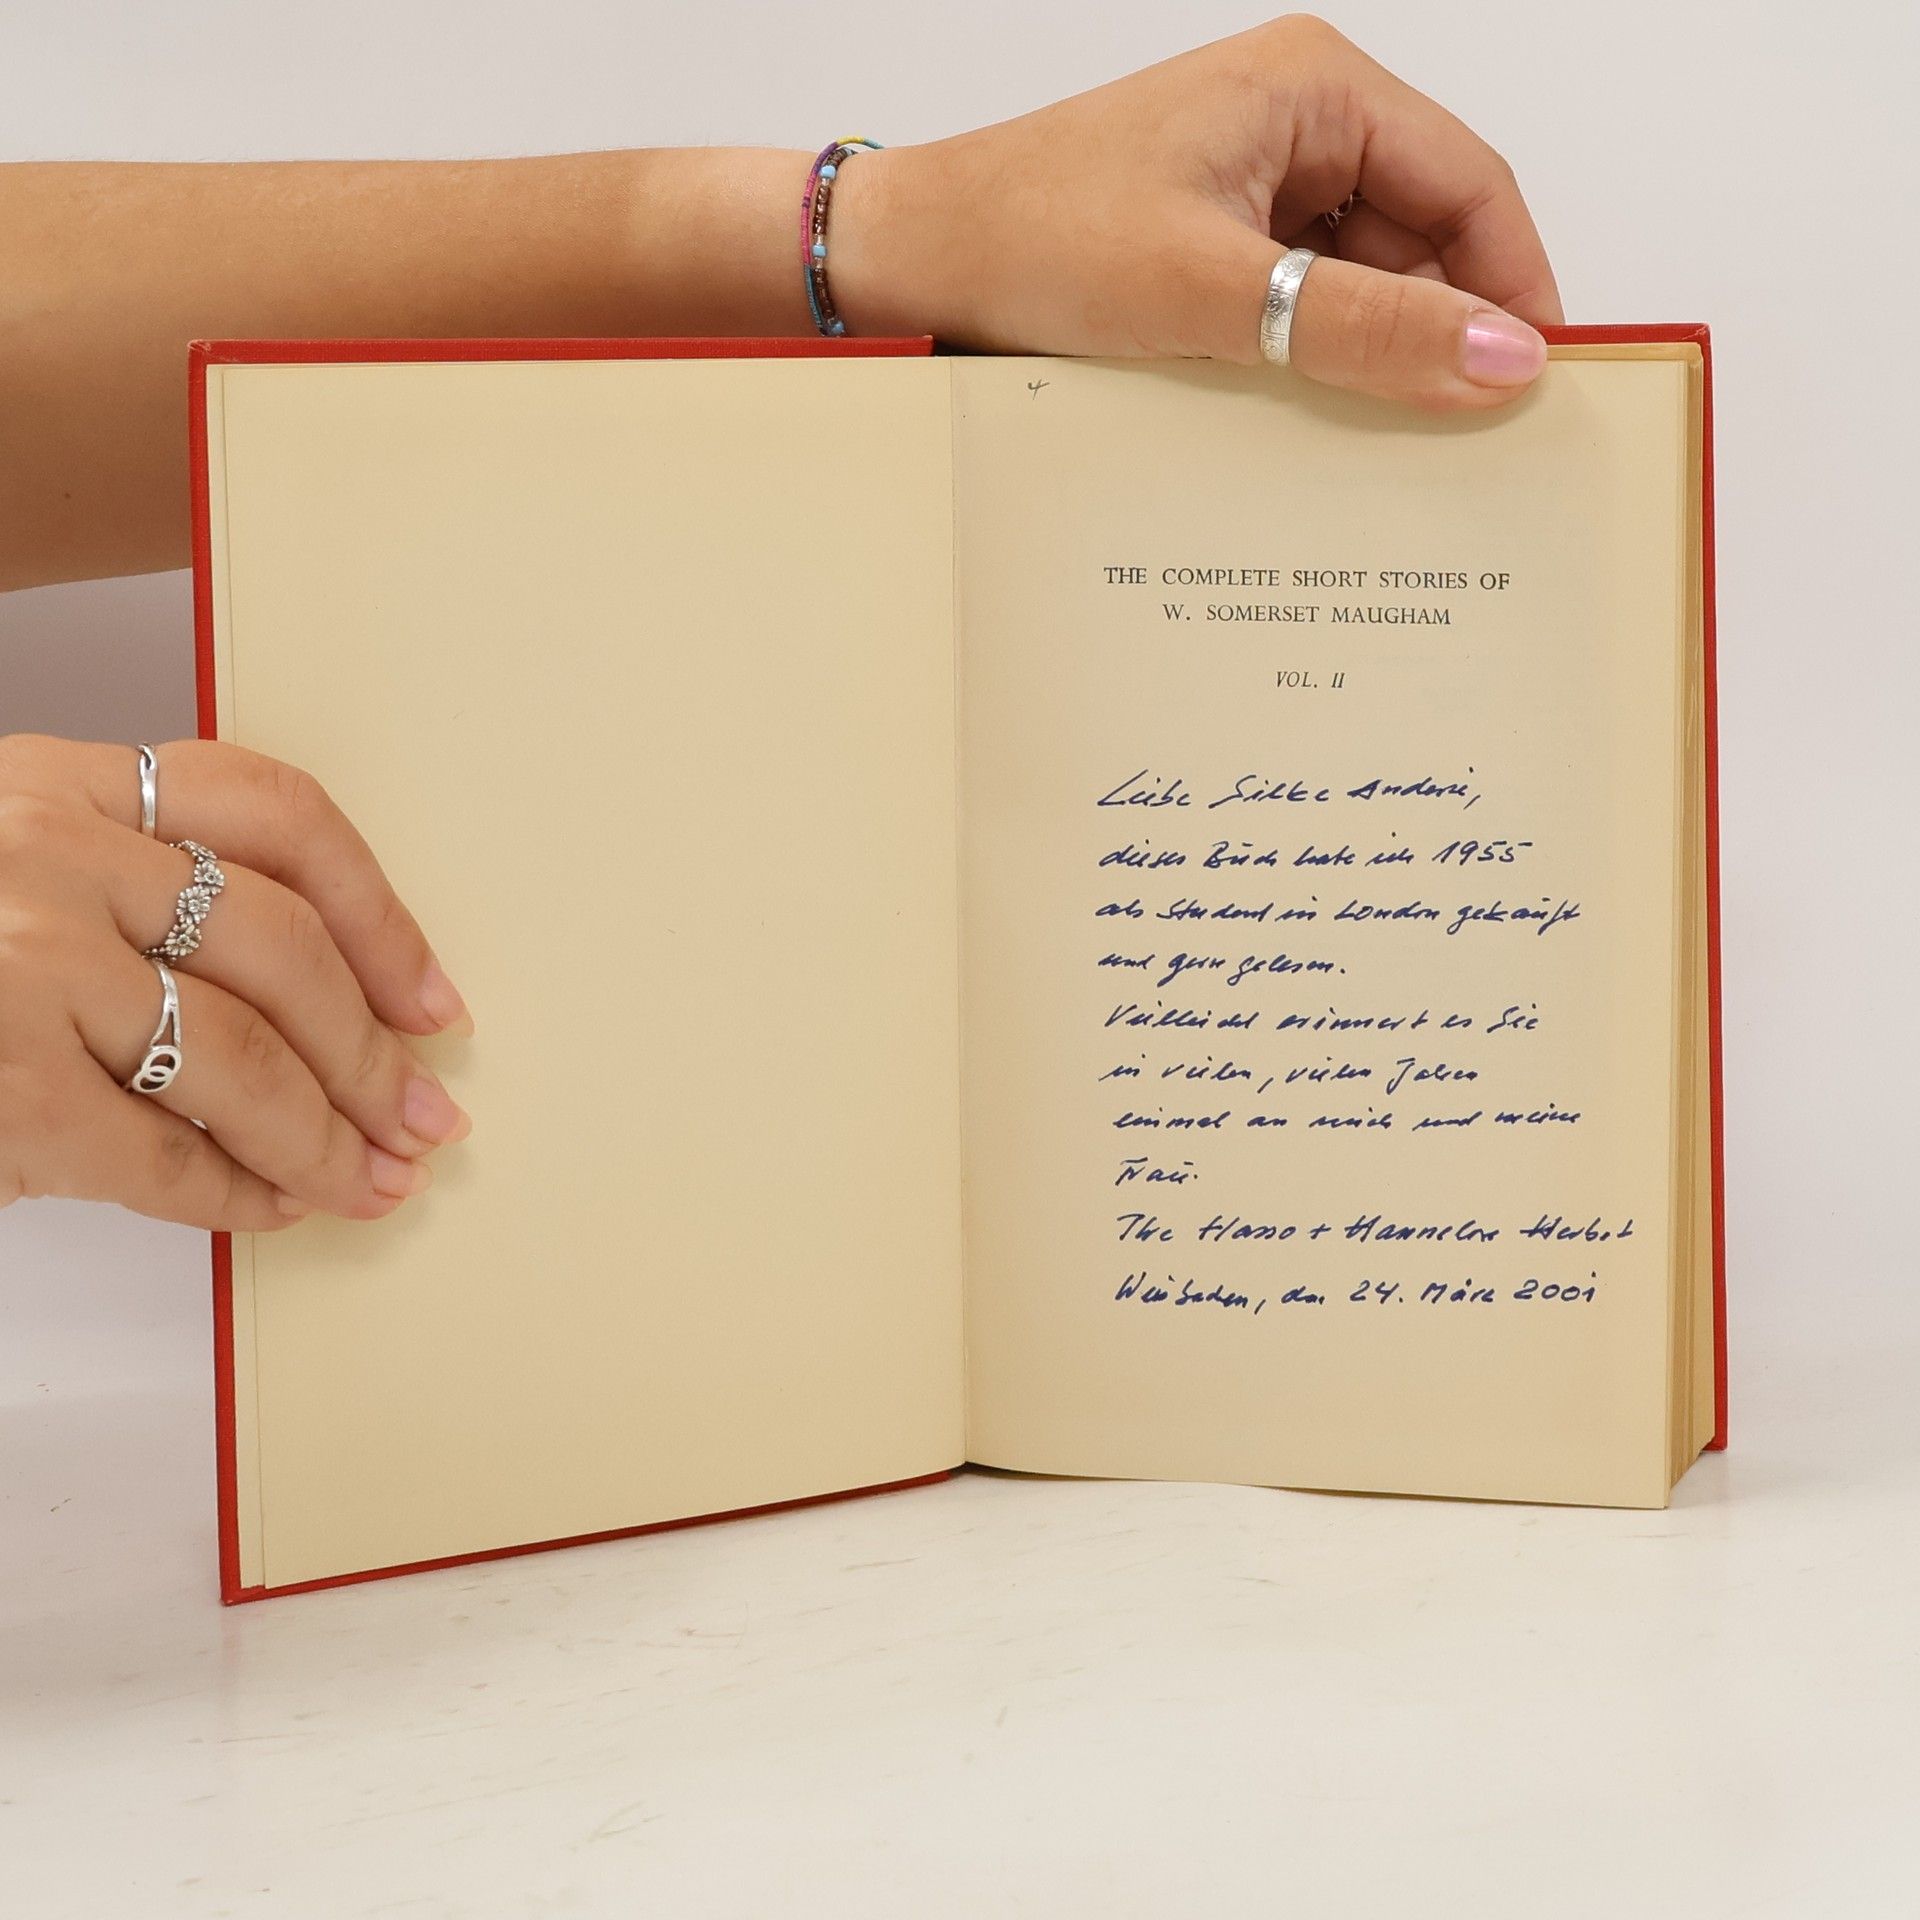 4
THE COMPLETE SHORT STORIES OF
W. SOMERSET MAUGHAM
VOL. II
Liebe Silke
dieses Buch habe ich 1955
als Student in London gekauft
und gern gelesen.
Vielleicht erinnert es Sie
in vielen, vielen Jahren
einmal an mich und meine
Frau.
Ihre Hasso + Hannelore Herbst
Wiesbaden, den 24. März 2001